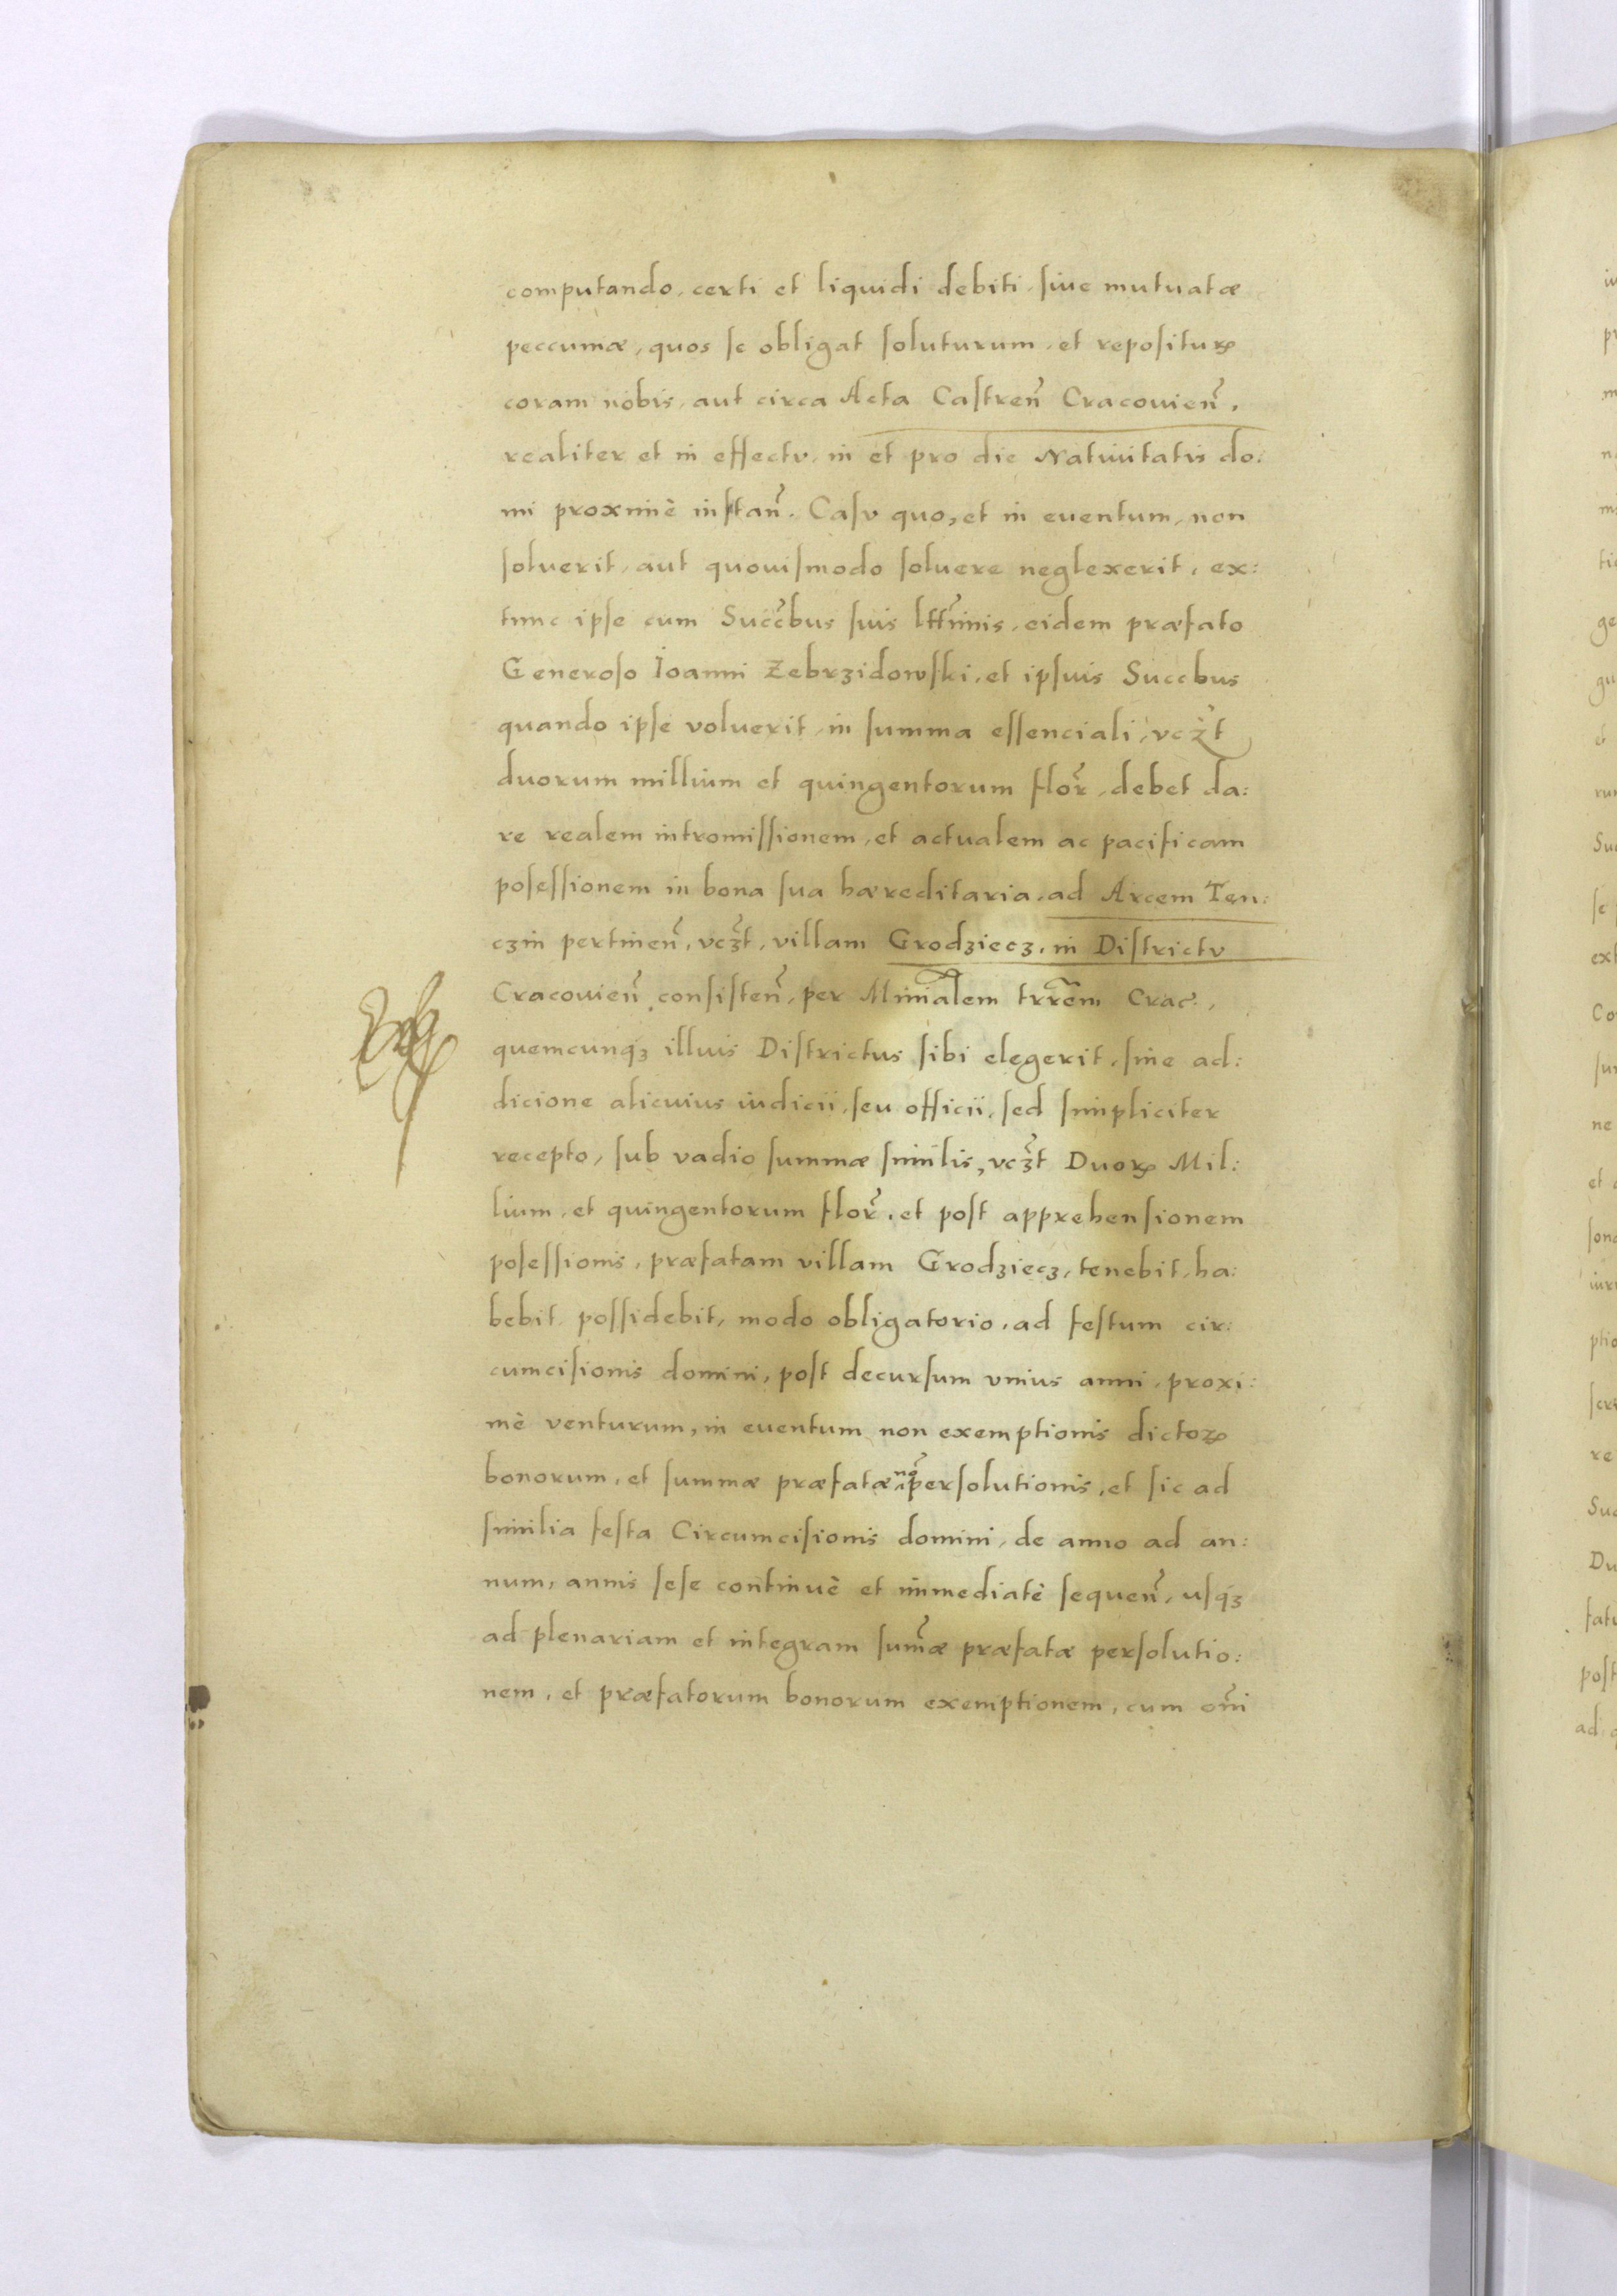 computando, certi et liquidi debiti, siue mutuatæ
peccuniæ, quos se obligat soluturum, et repositurꝝ
coram nobis, aut circa Acta Castreñ Cracouieñ,
realiter et in effectv, in et pro die Natiuitatis do:
mi proximè instañ. Casv quo, et in euentum, non
soluerit, aut quouismodo soluere neglexerit, ex:
tunc ipse cum Succ̃bus suis lttimis, eidem præfato
Generoso Ioanni Zebrzidowski, et ipsuis Succbus
quando ipse voluerit, in summa essenciali, vcz̃t
duorum millium et quingentorum flor̃, debet da:
re realem intromissionem, et actualem ac pacificam
posessionem in bona sua hæreditaria, ad Arcem Ten:
czin pertineñ, vcz̃t, villam Grodziecz, in Districtv
Cracouieñ consisteñ, per Minialem trrẽm Crac:,
quemcunqꝫ illius Districtus sibi elegerit, sine ad:
dicione alicuius iudicii, seu officii, sed simpliciter
recepto, sub vadio summæ similis, vcz̃t Duorꝝ Mil:
lium, et quingentorum flor̃, et post apprehensionem
posessionis, præfatam villam Grodziecz, tenebit, ha:
bebit, possidebit, modo obligatorio, ad festum cir:
cumcisionis domini, post decursum vnius anni, proxi:
mè venturum, in euentum non exemptionis dictoꝝ
bonorum, et summæ præfatæ nõ persolutionis, et sic ad
similia festa Circumcisionis domini, de anno ad an:
num, annis sese continuè et immediatè sequeñ, usqꝫ
ad plenariam et integram sum̃æ præfatæ persolutio:
nem, et præfatorum bonorum exemptionem, cum om̃i